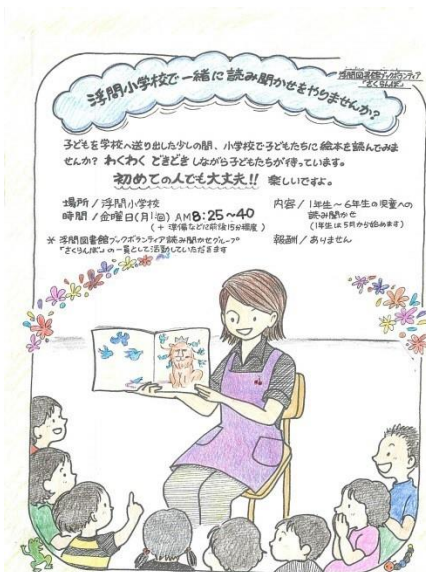 浮間図書館ブックボランティア
"さくらんぼ"
浮間小学校で一緒に読み聞かせをやりませんか?
子どもを学校へ送り出した少しの間、小学校で子どもたちに絵本を読んでみま
せんか? わくわく どきどきしながら子どもたちが待っています。
初めての人でも大丈夫!! 楽しいですよ。
場所/浮間小学校
時間/金曜日(月1回) AM8:25~40
(+ 準備などに前後15分程度)
* 浮間図書館ブックボランティア読み聞かせグループ
"さくらんぼ"の一員として活動していただきます
内容/1年生~6年生の児童への
読み聞かせ
(1年生は5月から始めます)
報酬/ありません